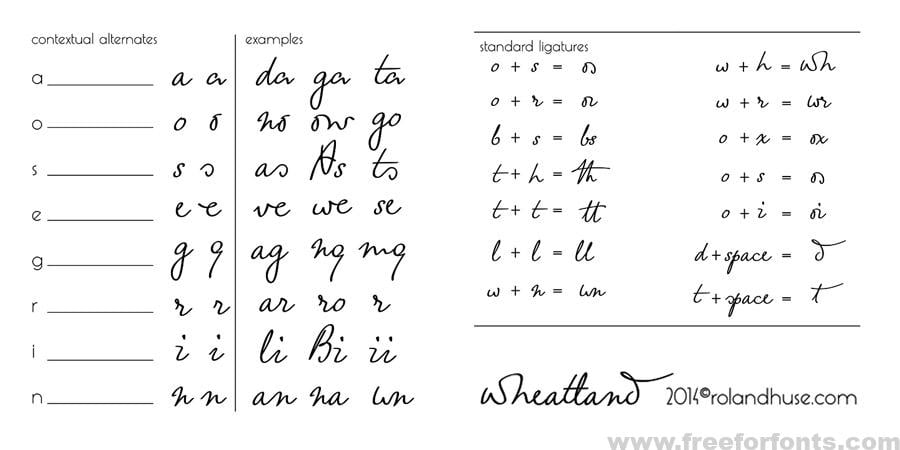 contextual alternates examples
a a a da ga ta
o o o no ow go
s s s as As ts
e e e ve we se
g g g ag ng mg
r r r ar ro r
i i i li Bi ii
n n n an na wn
standard ligatures
o + s = os
o + r = or
b + s = bs
t + h = th
t + t = tt
l + l = ll
w + n = wn
w + h = wh
w + r = wr
o + x = ox
o + s = os
o + i = oi
d + space = d
t + space = t
wheatland 2014©rolandhuse.com
www.freeforfonts.com